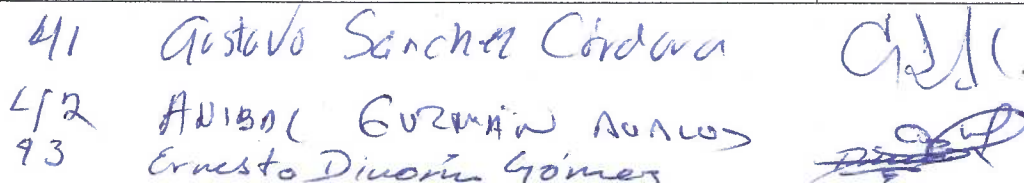 41 Gustavo Sánchez Córdova
42 ANIBAL GUZMÁN AVALOS
43 Ernesto Gómez